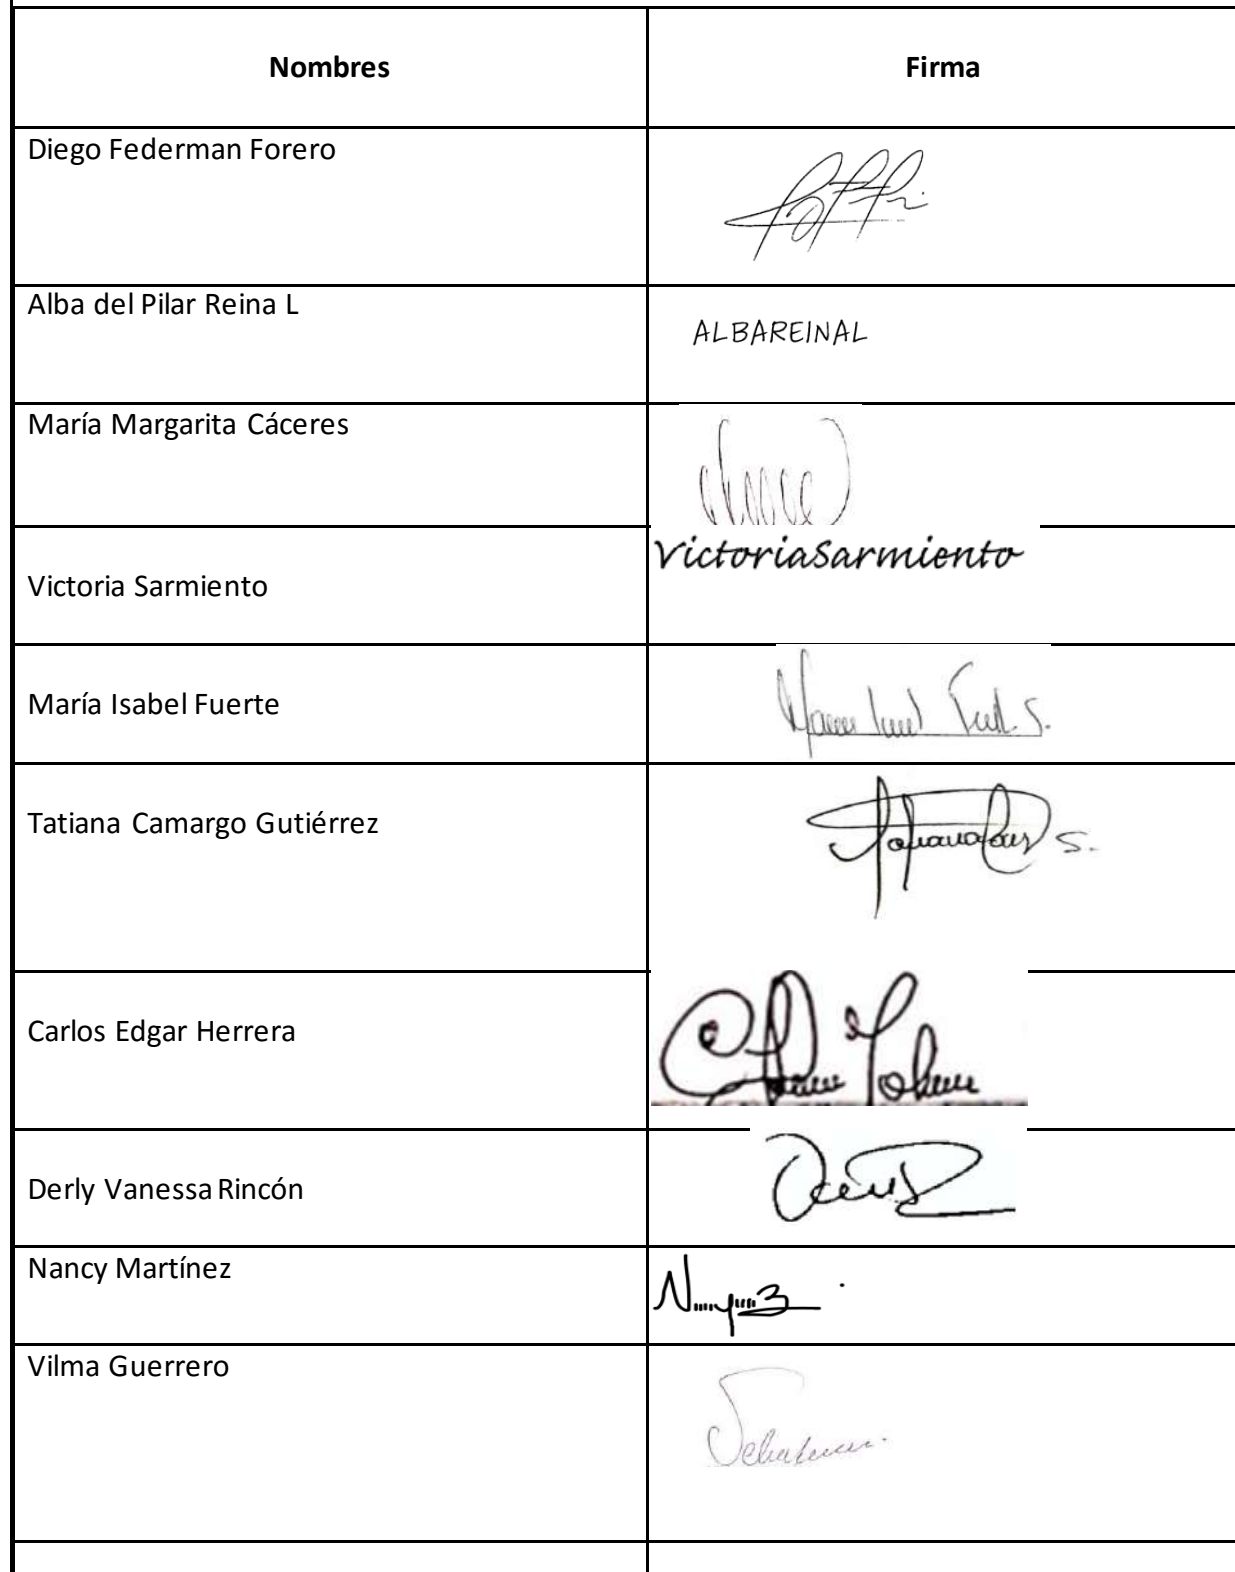 Nombres Firma
Diego Federman Forero
Alba del Pilar Reina L
ALBAREINAL
María Margarita Cáceres
Victoria Sarmiento
VictoriaSarmiento
María Isabel Fuerte
Tatiana Camargo Gutiérrez
S.
Carlos Edgar Herrera
Derly Vanessa Rincón
Nancy Martínez
Vilma Guerrero